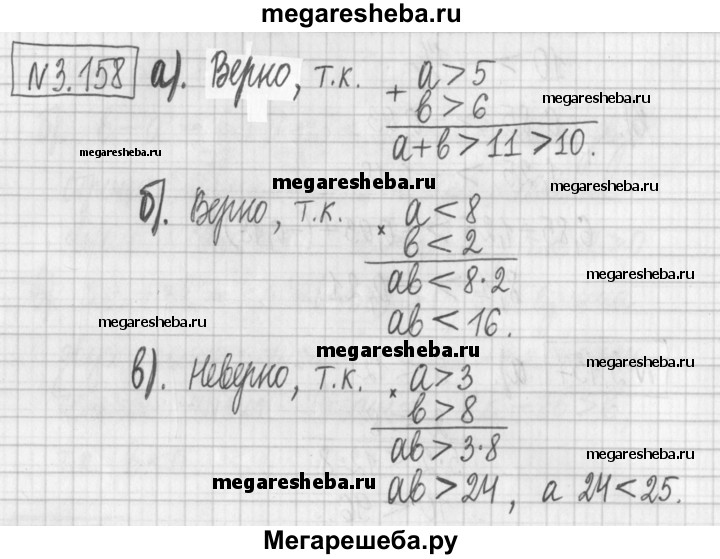 megaresheba.ru
№3.158 а). Верно, т.к. + a>5
b>6
megaresheba.ru
a+b>11>10.
megaresheba.ru
megaresheba.ru
megaresheba.ru
б). Верно, т.к. × a<8
b<2
ab<8·2
megaresheba.ru
megaresheba.ru
ab<16.
megaresheba.ru
megaresheba.ru
в). Неверно, т.к. × a>3
b>8
ab>3·8
megaresheba.ru
megaresheba.ru
ab>24, а 24<25.
Мегарешеба.ру